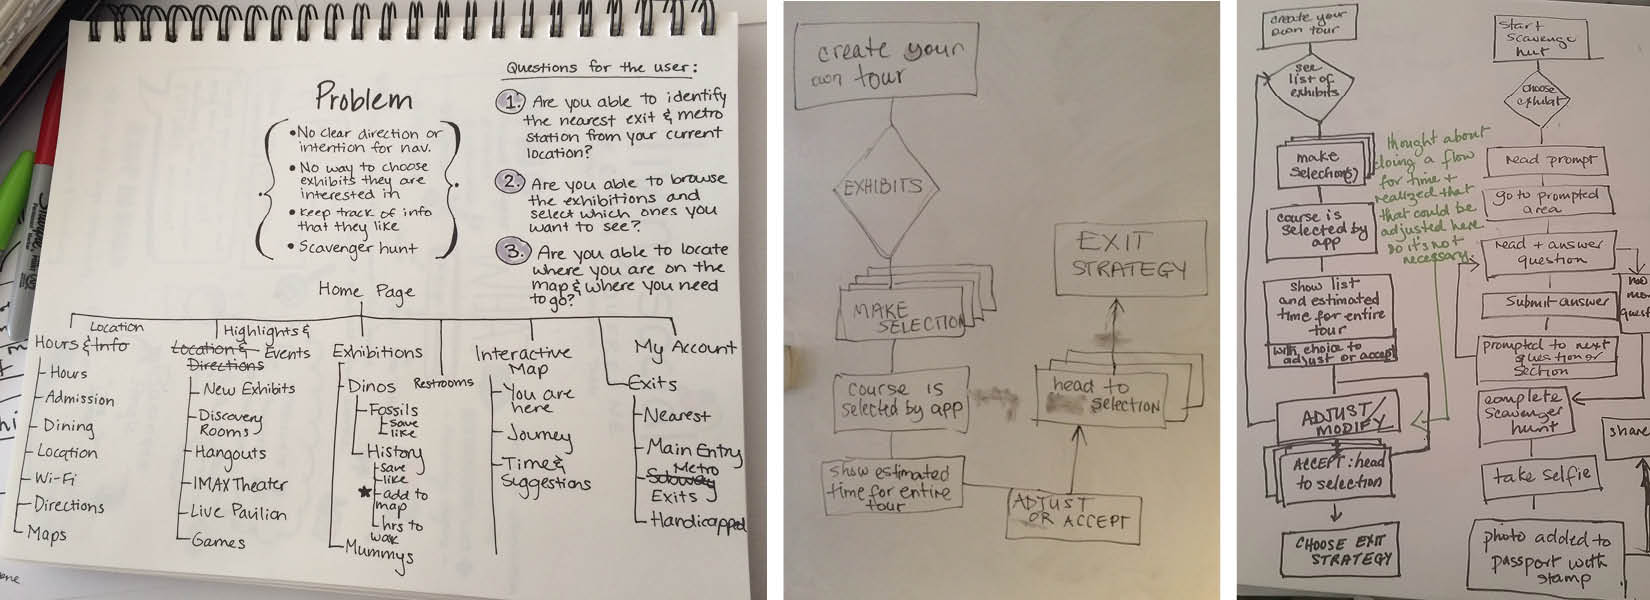 Problem
•No clear direction or
intention for nav.
•No way to choose
exhibits they are
interested in
•Keep track of info
that they like
•Scavenger hunt
Questions for the user:
1. Are you able to identify
the nearest exit & metro
station from your current
location?
2. Are you able to browse
the exhibitions and
select which ones you
want to see?
3. Are you able to locate
where you are on the
map & where you need
to go?
Home Page
Location
Hours & Info
Hours
Admission
Dining
Location
Wi-Fi
Directions
Maps
Highlights &
Location & Events
Directions
New Exhibits
Discovery
Rooms
Hangouts
IMAX Theater
Live Pavilion
Games
Exhibitions
Dinos
Fossils
save
like
History
save
like
★ add to
map
hrs to
walk
Mummys
Restrooms
Interactive
Map
You are
here
Journey
Time &
Suggestions
My Account
Exits
Nearest
Main Entry
Metro
Subway
Exits
Handicapped
create your
own tour
EXHIBITS
MAKE
SELECTION
course is
selected by app
show estimated
time for entire
tour
ADJUST
OR ACCEPT
head to
selection
EXIT
STRATEGY
create your
own tour
see
list of
exhibits
make
selection(s)
course is
selected by
app
show list
and estimated
time for entire
tour
with choice to
adjust or accept
ADJUST/
MODIFY
ACCEPT: head
to selection
CHOOSE EXIT
STRATEGY
thought about
doing a flow
for time +
realized that
that could be
adjusted here
so it's not
necessary.
start
scavenge
hut
choose
exhibit
read prompt
go to prompted
area
read + answer
question
submit answer
prompted to next
question or
section
complete
scavenger
hunt
take selfie
photo added to
passport with
stamp
share